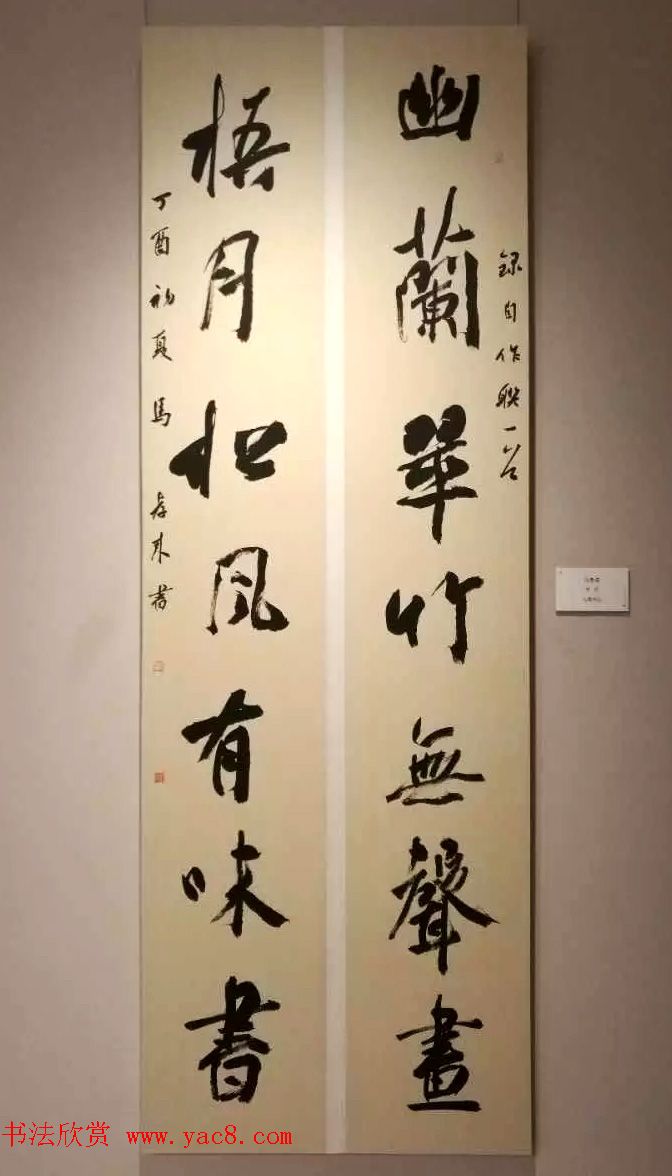 幽蘭翠竹無聲畫
録自作聯一
梧月松風有味書
丁酉初夏馬書
书法欣赏 www.yac8.com